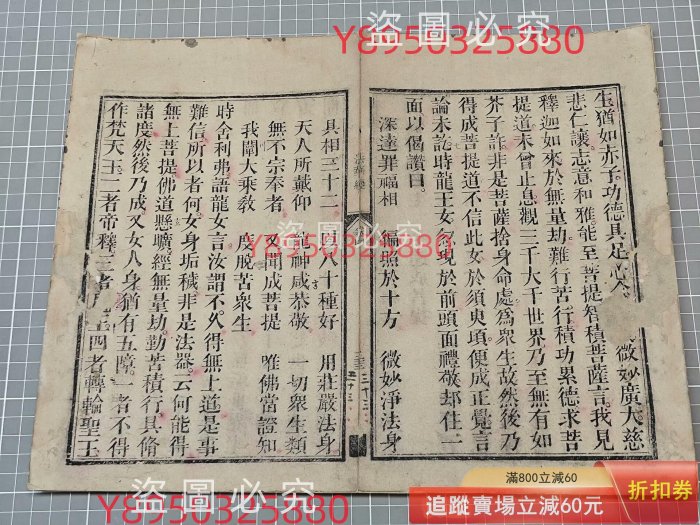 盜圖必究
Y8950325880
生猶如赤子功德具足心 微妙廣大慈
悲仁讓志意和雅能至菩提智積菩薩言我見
釋迦如來於無量劫難行苦行積功累德求菩
提道未曾止息觀三千大千世界乃至無有如
芥子許非是菩薩捨身命處爲衆生故然後乃
得成菩提道不信此女於須臾頃便成正覺言
論未訖時龍王女忽現於前頭面禮敬却住一
面以偈讚曰
深達罪福相 徧照於十方 微妙淨法身
法華經
具相三十二 以八十種好 用莊嚴法身
天人所戴仰 龍神咸恭敬 一切衆生類
無不宗奉者 又聞成菩提 唯佛當證知
我闡大乘敎 度脫苦衆生
時舍利弗語龍女言汝謂不久得無上道是事
難信所以者何女身垢穢非是法器云何能得
無上菩提佛道懸曠經無量劫勤苦積行具脩
諸度然後乃成又女人身猶有五障一者不得
作梵天王二者帝釋三者 王四者轉輪聖王
盜圖必究
Y8950325880
盜圖必究
Y8950325880
滿800立減60
追蹤賣場立減60元
折扣券